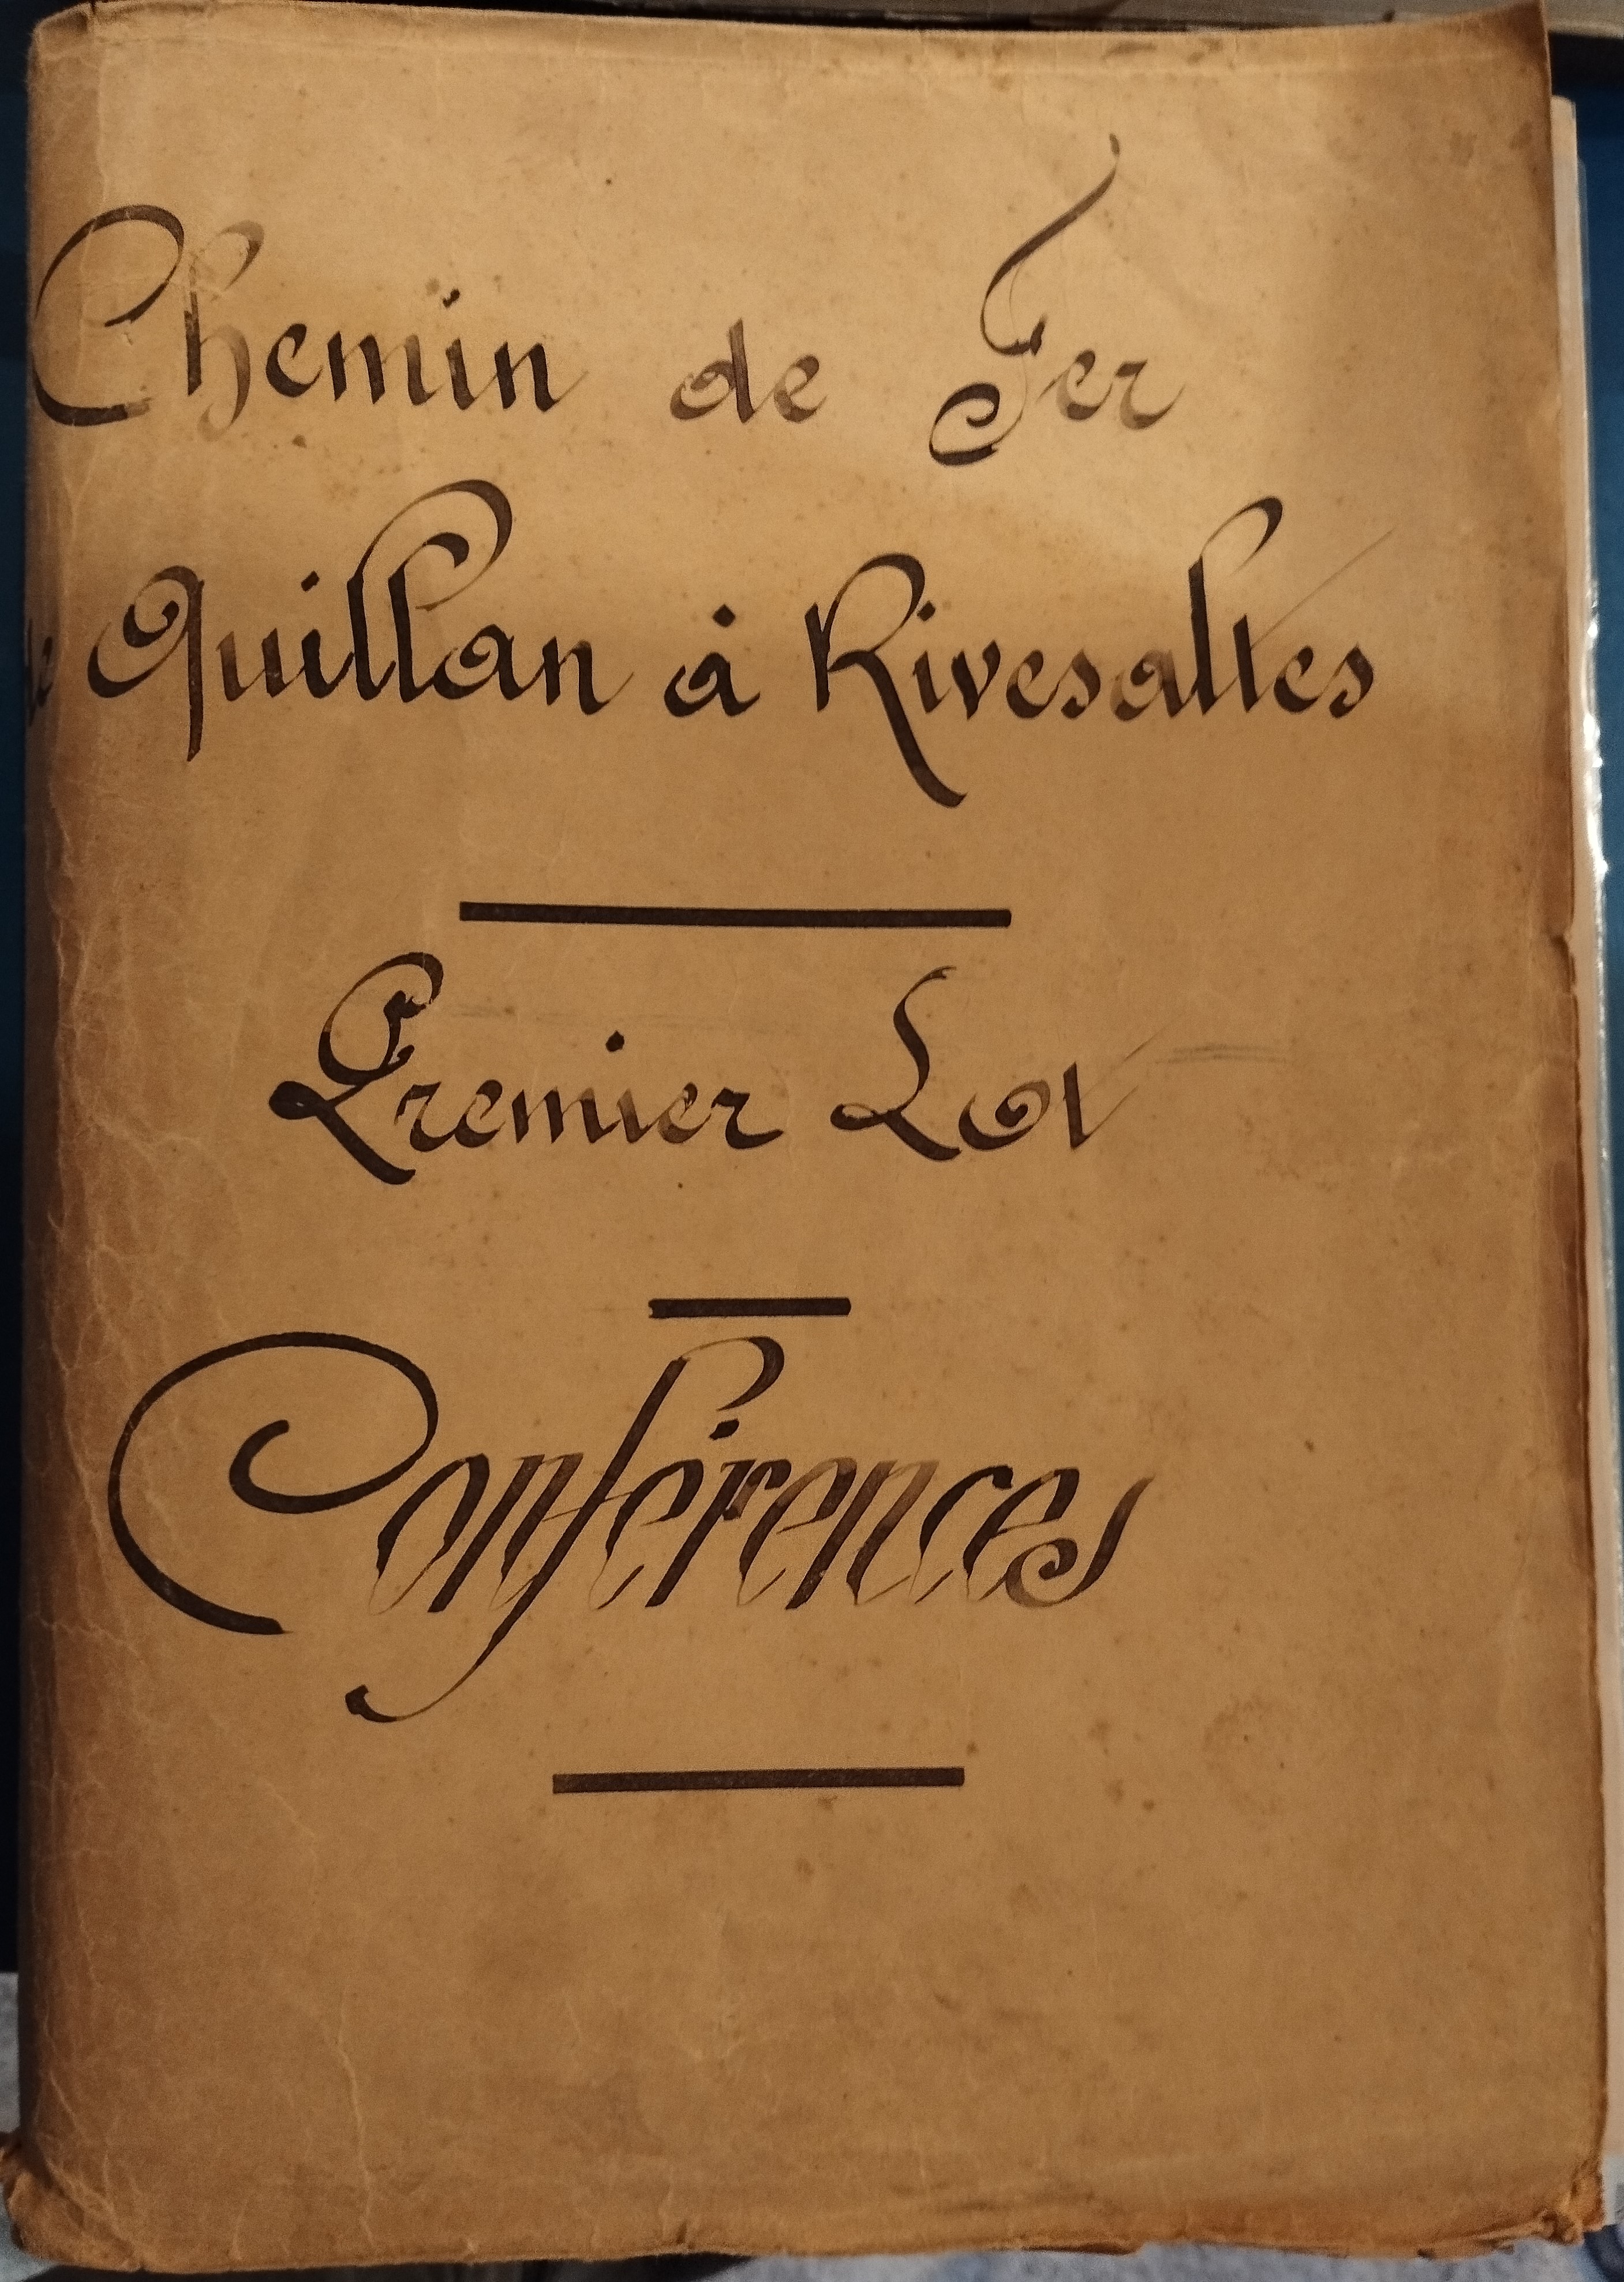 Chemin de Fer
de Quillan à Rivesaltes
Premier Lot
Conférences